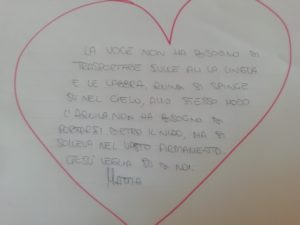 LA VOCE NON HA BISOGNO DI
TRASPORTARE SULLE ALI LA LINGUA
E LE LABBRA, SI SPINGE
SU NEL CIELO, ALLO STESSO MODO
L'AQUILA NON HA BISOGNO DI
PORTARSI DIETRO IL NIDO, MA SI
SOLLEVA NEL VASTO FIRMAMENTO.
GESÙ VEGLIA SU DI NOI.